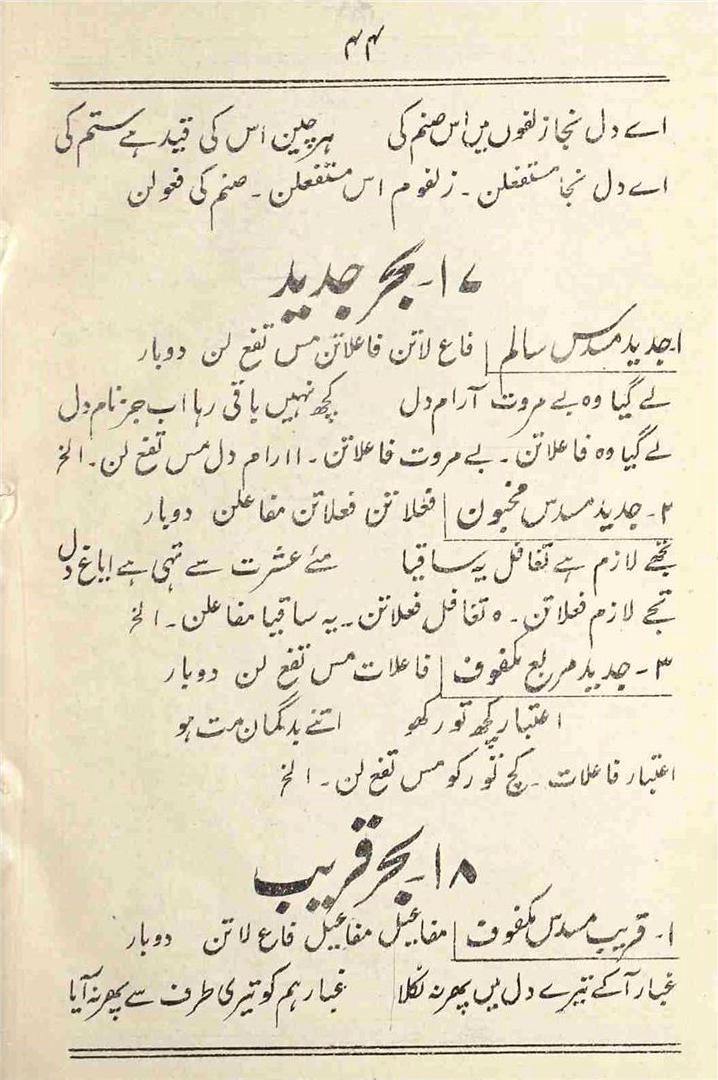 ۴۴
اے دل نجا زلفوں میں اس صنم کی ہر چین اس کی قید ہے ستم کی
اے دل نجا مستفعلن ۔ زلفوم اس مستفعلن ۔ صنم کی فعولن
۱۷۔ بحر جدید
۱۔ جدید مسدس سالم فاع لاتن فاعلاتن مس تفع لن دوبار
لے گیا وہ بے مروت آرام دل کچھ نہیں باقی رہا اب جز نام دل
لے گیا وہ فاعلاتن ۔ بے مروت فاعلاتن ۔ اارام دل مس تفع لن ۔ الخ
۲۔ جدید مسدس مخبون فعلاتن فعلاتن مفاعلن دوبار
تجھے لازم ہے تغافل یہ ساقیا مئے عشرت سے تہی ہے ایاغ دل
تجے لازم فعلاتن ۔ ہ تغافل فعلاتن ۔ یہ ساقیا مفاعلن ۔ الخ
۳۔ جدید مربع مکفوف فاعلات مس تفع لن دوبار
اعتبار کچھ تو رکھو اتنے بدگمان مت ہو
اعتبار فاعلات ۔ کچ تو رکو مس تفع لن ۔ الخ
۱۸۔ بحر قریب
۱۔ قریب مسدس مکفوف مفاعیل مفاعیل فاع لاتن دوبار
غبار آکے تیرے دل میں پھر نہ نکلا غبار ہم کو تیری طرف سے پھر نہ آیا